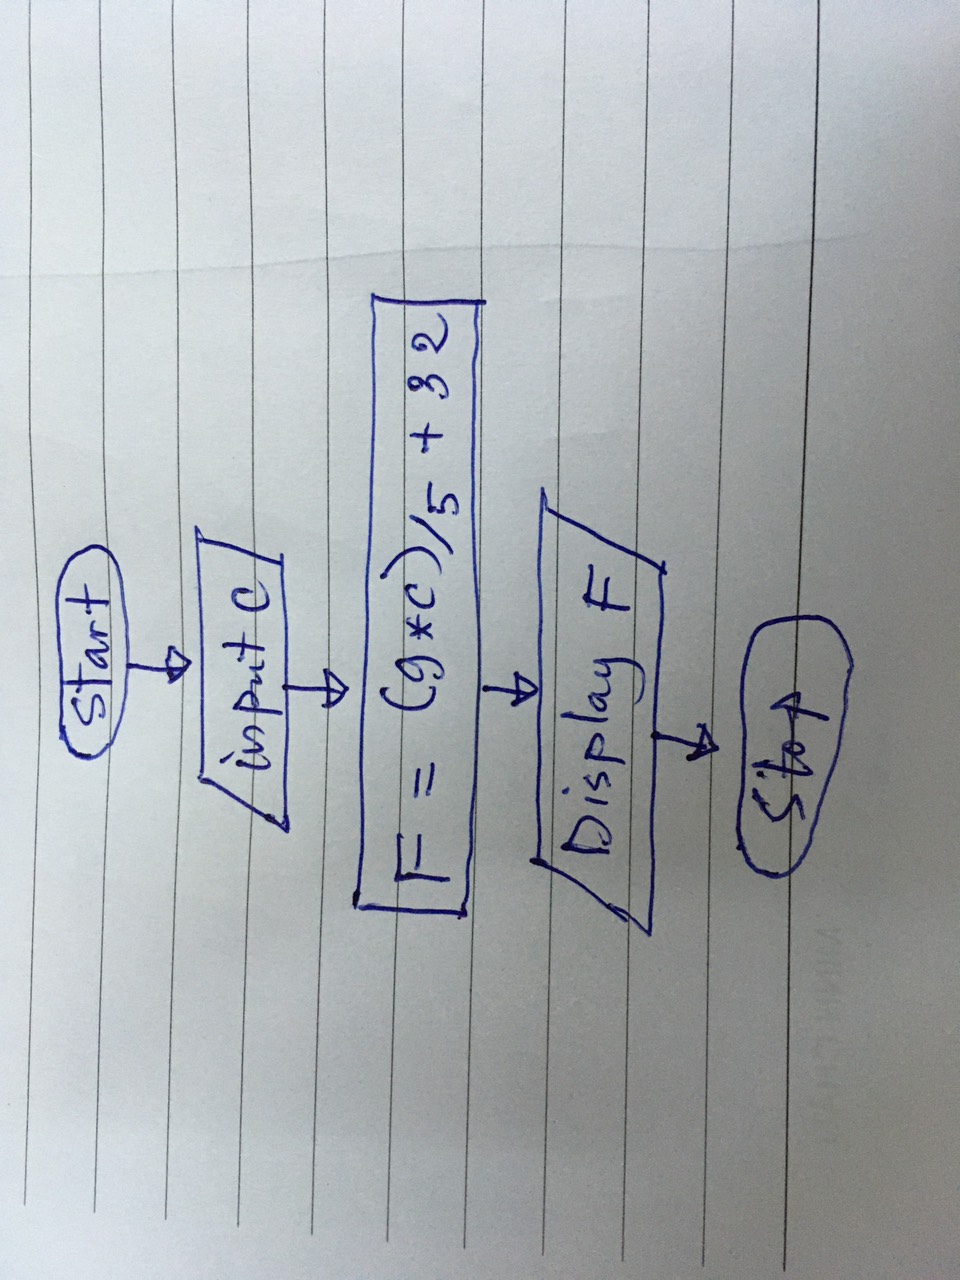 Start
input C
F = (9*C)/5 + 32
Display F
Stop